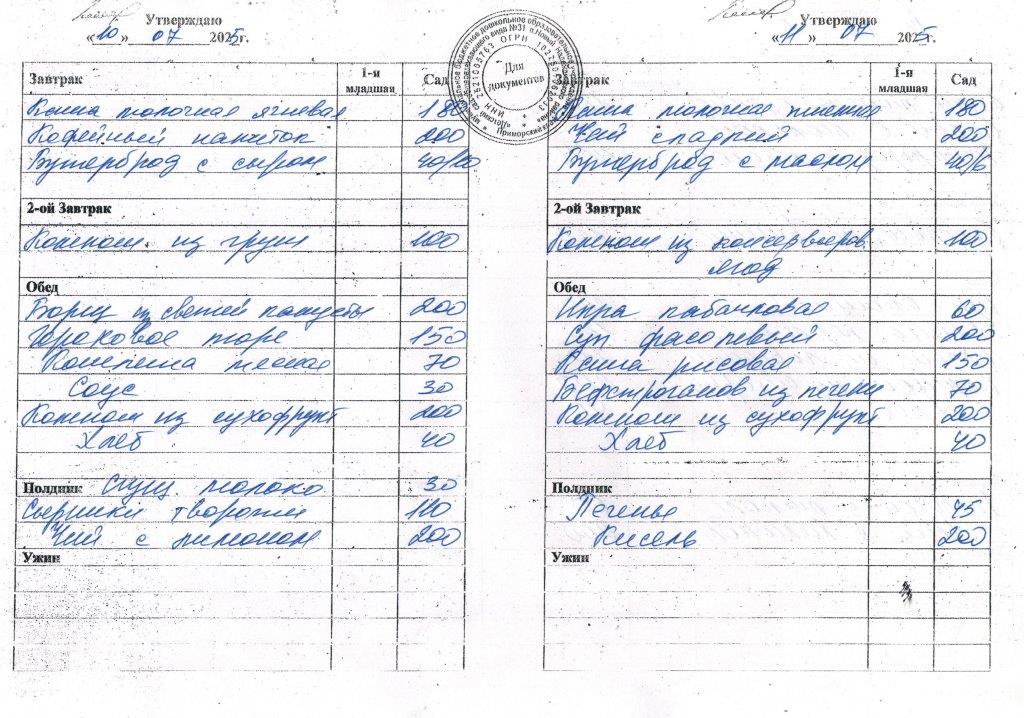 Утверждаю
«10» 07 2025г.
Завтрак 1-я младшая Сад
Каша молочная ячневая 180
Кофейный напиток 200
Бутерброд с сыром 40/
2-ой Завтрак
Компот из груш 100
Обед
Борщ из свежей капусты 200
Гороховое пюре 150
Котлета мясная 70
Соус 30
Компот из сухофрукт 200
Хлеб 40
Полдник сгущ. молоко 30
Сырники творожн 110
Чай с лимоном 200
Ужин
Для документов
Утверждаю
«11» 07 2025г.
Завтрак 1-я младшая Сад
Каша молочная пшенная 180
Чай сладкий 200
Бутерброд с маслом 40/6
2-ой Завтрак
Компот из консервиров 100
ягод
Обед
Икра кабачковая 60
Суп фасолевый 200
Каша рисовая 150
Бефстроганов из печени 70
Компот из сухофрукт 200
Хлеб 40
Полдник
Печенье 45
Кисель 200
Ужин